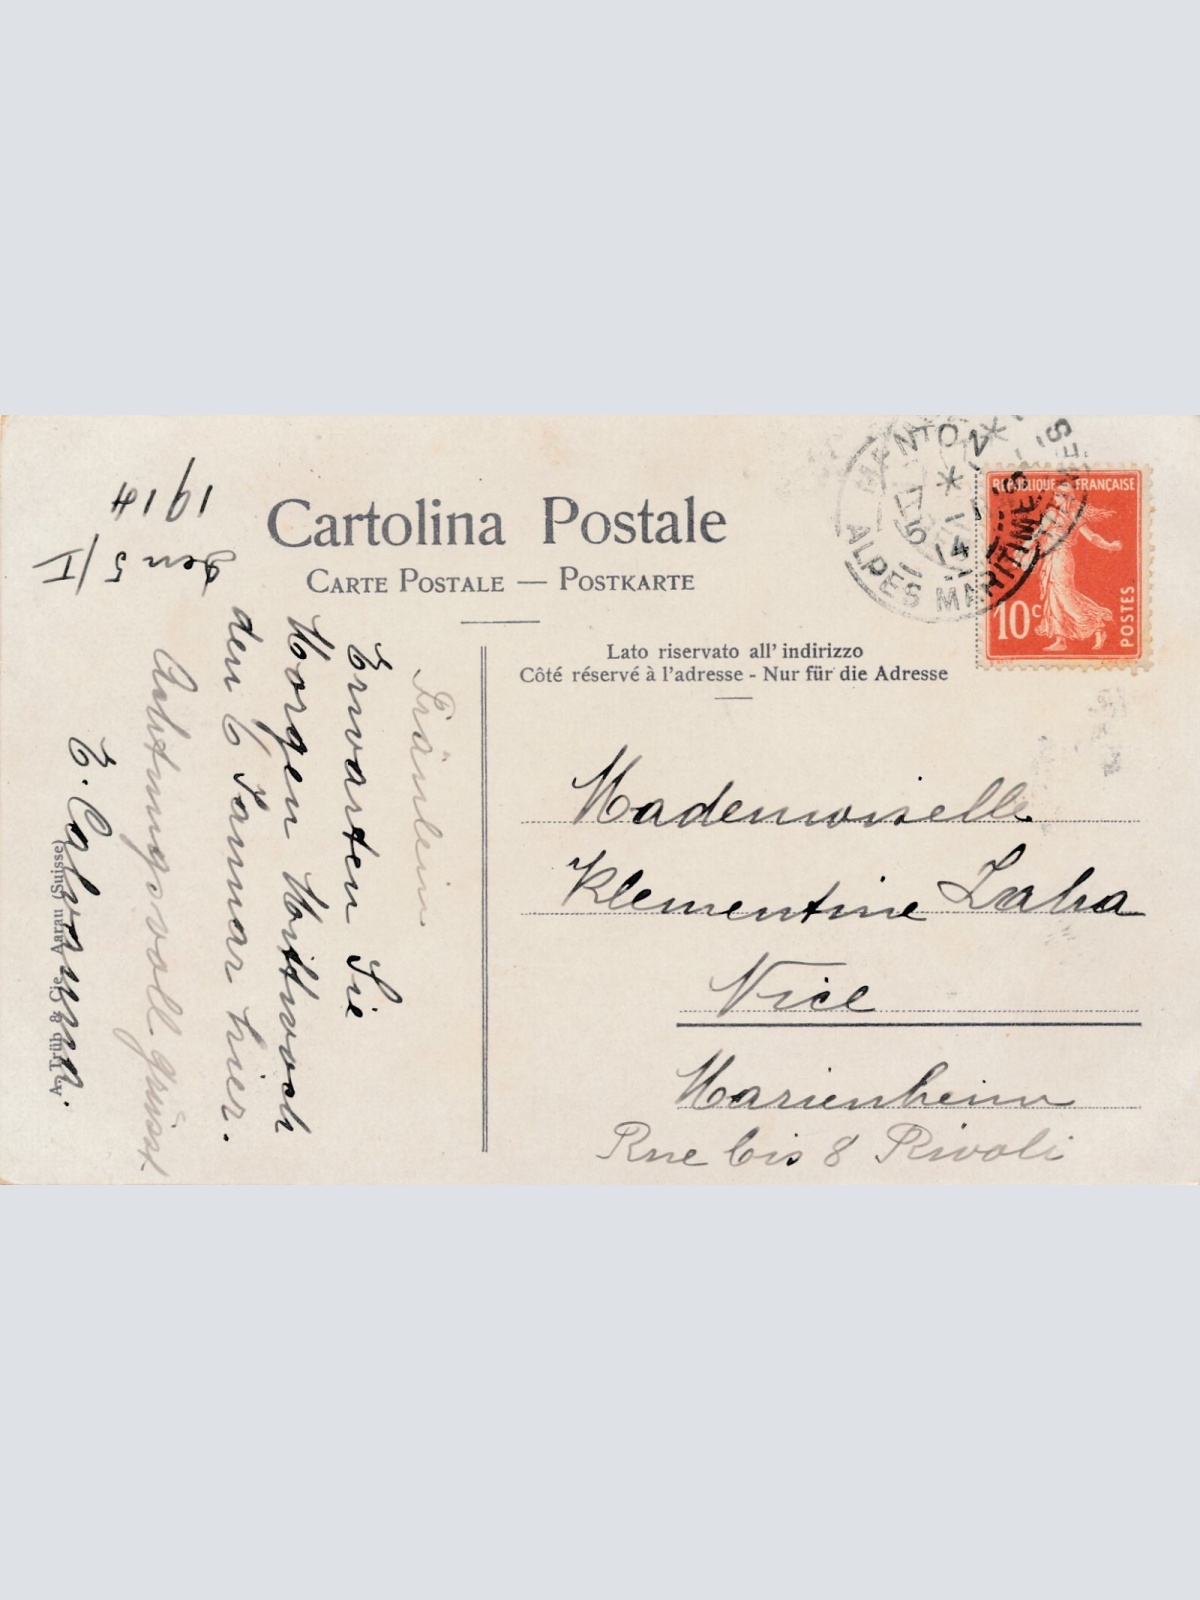 Cartolina Postale
CARTE POSTALE — POSTKARTE
Lato riservato all' indirizzo
Côté réservé à l'adresse - Nur für die Adresse
MENTON
17 * 
5 -1
14
ALPES MARITIMES
REPUBLIQUE FRANÇAISE
10c
POSTES
Mademoiselle
Klementine Laha
Nice
Marienheim
Rue bis 8 Rivoli
den 5/I
1914
Fräulein
Erwarten Sie
Morgen Mittwoch
den 6 Januar hier.
Achtungsvoll grüsst
A. Trüb & Cie. Aarau (Suisse)